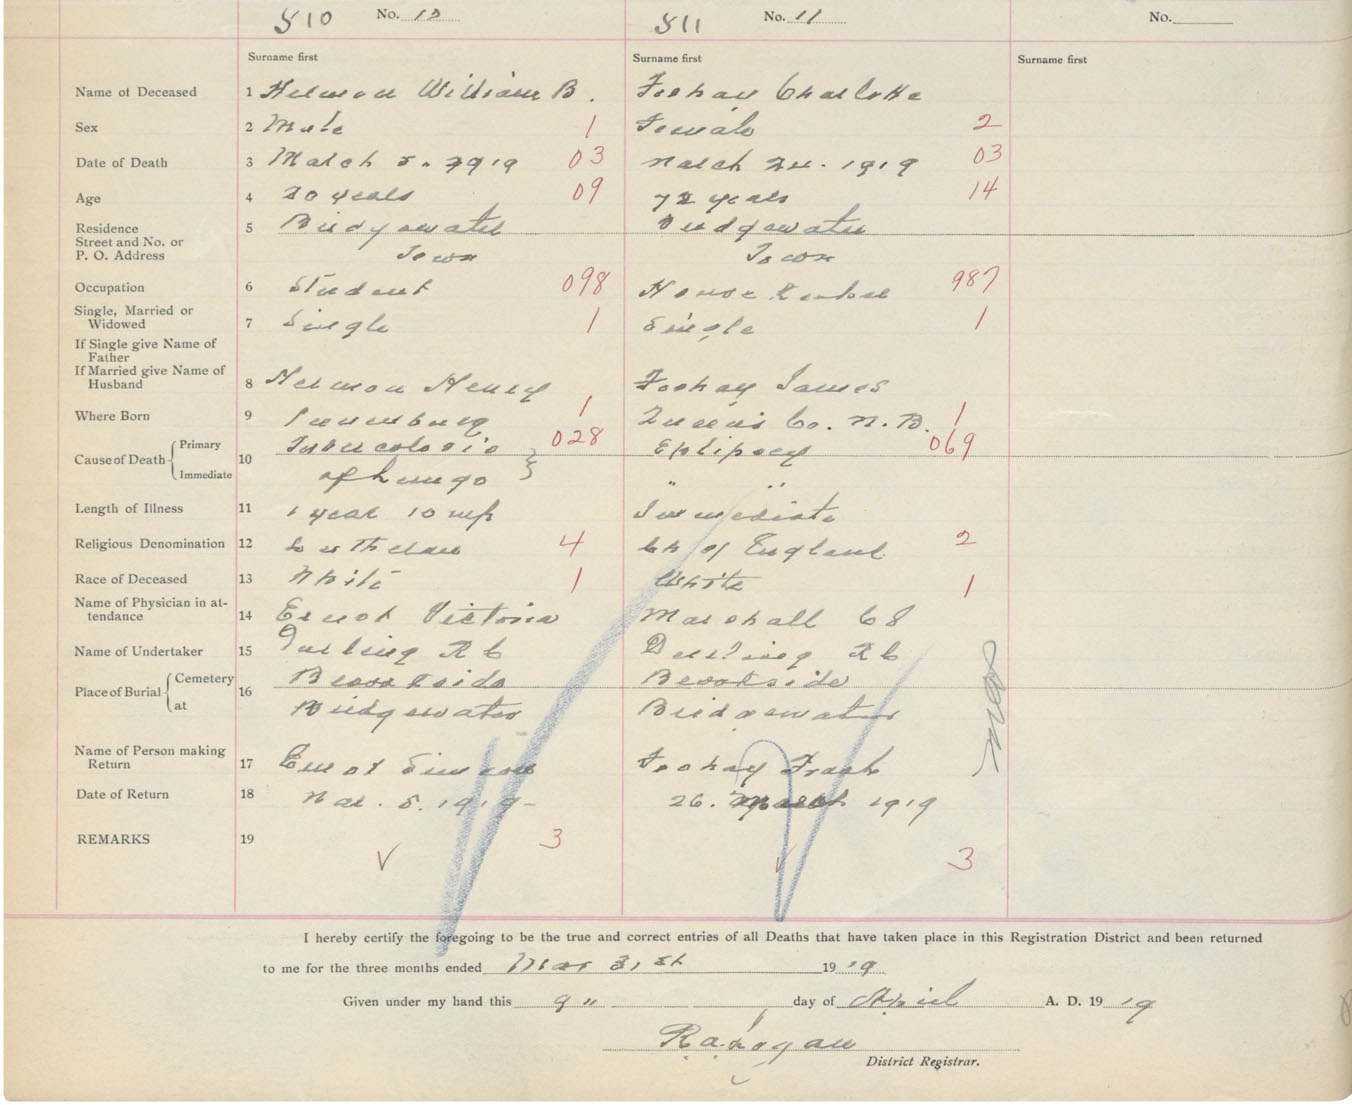 810 No. 10 811 No. 11 No.
Surname first Surname first Surname first
Name of Deceased 1 Herman William B. Foshay Charlotte
Sex 2 Male 1 Female 2
Date of Death 3 March 5. 1919 03 March 24. 1919 03
Age 4 20 years 09 72 years 14
Residence
Street and No. or
P. O. Address
5 Bridgewater Bridgewater
Town Town
Occupation 6 Student 098 House 987
Single, Married or
Widowed
7 Single 1 Single 1
If Single give Name of
Father
If Married give Name of
Husband
8 Herman Henry Foshay James
Where Born 9 Lunenburg 1 Queens Co. N. B. 1
Cause of Death Primary
Immediate
10 Tuberculosis 028 Epilipscy 069
of Lungs " "
Length of Illness 11 1 year 10 Immediate
Religious Denomination 12 Lutheran 4 Ch of England 2
Race of Deceased 13 White 1 White 1
Name of Physician in at-
tendance
14 Ernst Victoria Marshall C S
Name of Undertaker 15 R C R C
Place of Burial Cemetery
at
16 Brookside Brookside
Bridgewater Bridgewater
Name of Person making
Return
17 Ernst Simeon Foshay
Date of Return 18 Mar. 5. 1919- 26. March 1919
REMARKS 19 3 3
I hereby certify the foregoing to be the true and correct entries of all Deaths that have taken place in this Registration District and been returned
to me for the three months ended Mar 31st 1919
Given under my hand this 9" day of April A. D. 1919
District Registrar.